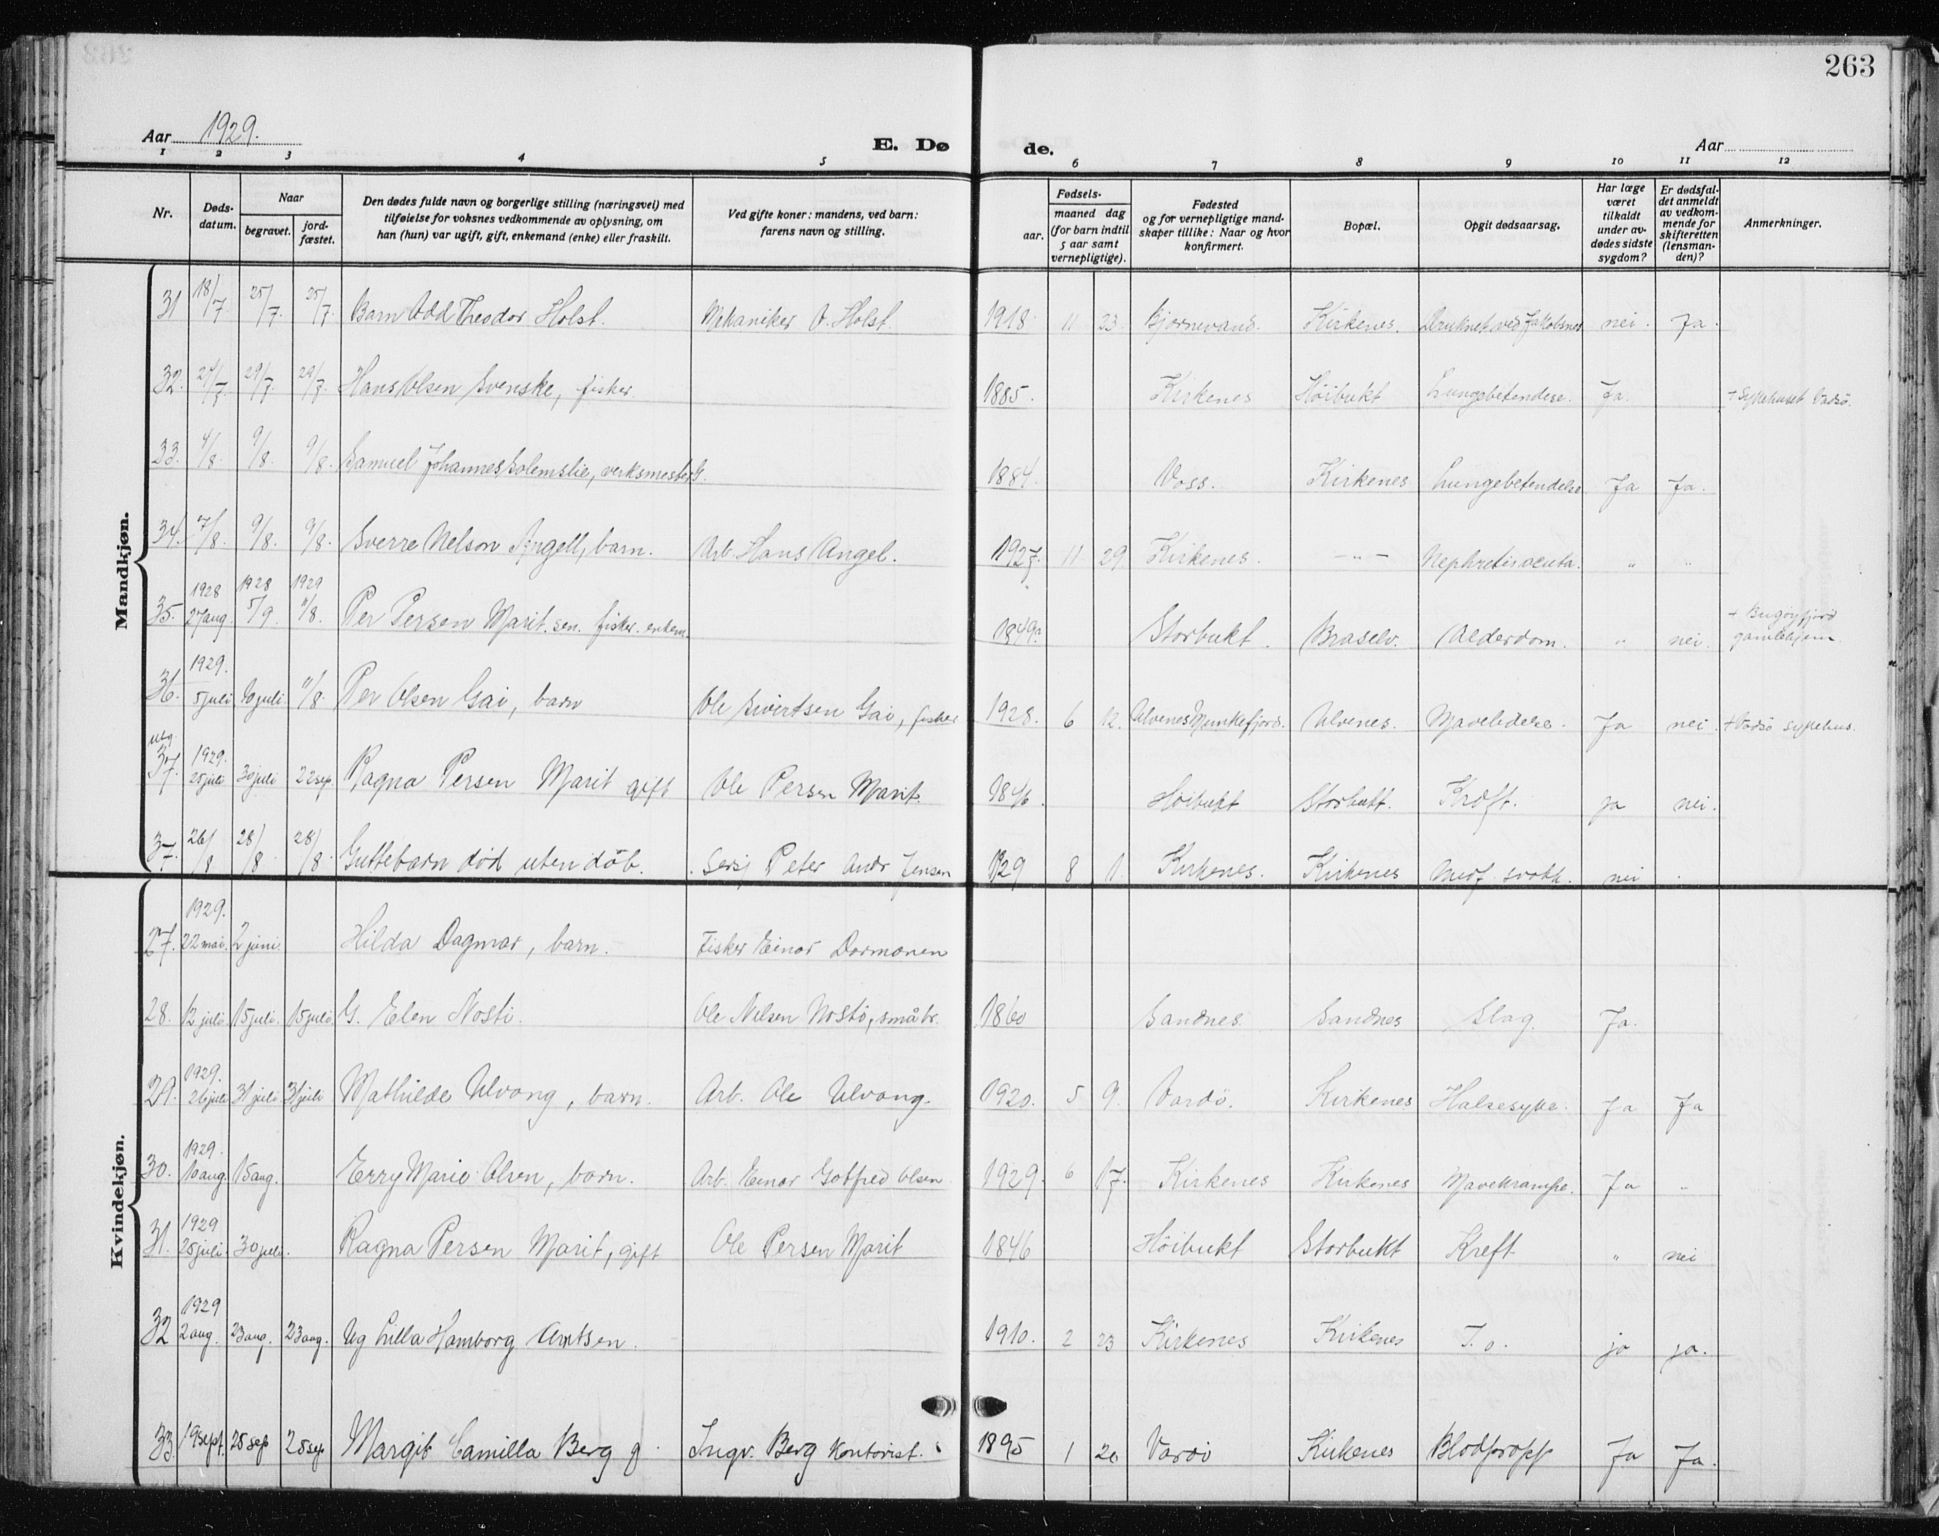 263
Aar 1929.
E. Døde.
Aar
1 2 3 4 5 6 7 8 9 10 11 12
Nr.
Døds-
datum.
Naar
begravet.
jord-
fæstet.
Den dødes fulde navn og borgerlige stilling (næringsvei) med
tilføielse for voksnes vedkommende av oplysning, om
han (hun) var ugift, gift, enkemand (enke) eller fraskilt.
Ved gifte koner: mandens, ved barn:
farens navn og stilling.
Fødsels-
aar.
maaned dag
(for barn indtil
5 aar samt
vernepligtige).
Fødested
og for vernepligtige mand-
skaper tillike: Naar og hvor
konfirmert.
Bopæl.
Opgit dødsaarsag.
Har læge
været
tilkaldt
under av-
dødes sidste
sygdom?
Er dødsfal-
det anmeldt
av vedkom-
mende for
skifteretten
(lensman-
den)?
Anmerkninger.
Mandkjøn.
31 18/7 25/7. 25/7 Barn Odd Theodor Holst. Mekaniker O. Holst. 1918. 11 23. Bjørnevand. Kirkenes. Druknet ved Jakobsnes nei. Ja.
32. 24/7. 29/7. 29/7. Hans Olsen Svenske, fisker. 1885. Kirkenes Höibukt Lungebetendelse. Ja. + Sykehuset Vadsö.
33. 4/8. 9/8. 9/8. Samuel Johannes Solemslie, verksmester G. 1884. Voss. Kirkenes Lungebetendelse Ja Ja.
34. 7/8. 9/8. 9/8. Sverre Nelson Angell, barn. Arb. Hans Angel. 1927. 11 29. Kirkenes. -"- Nephretis acuta. " "
35. 1928 27 aug. 1928 5/9. 1929 11/8. Per Persen Marit. sen. fisker. enkem. 1849. Storbukt. Braselv. Alderdom. " nei. + Bugöyfjord
gamlehjem.
36. 1929. 5 juli 10 juli. 11/8. Per Olsen Gai, barn Ole Sivertsen Gai, fisker 1928. 6 12. Ulvenes Munkefjord. Ulvenes. Mavelidelse. Ja nei. + Vadsö sykehus.
utg
37. 1929. 25 juli 30 juli 22 sep. Ragna Persen Marit gift Ole Persen Marit. 1846. Höibukt Storbukt. Kreft. ja nei.
37. 26/8 28/8. 28/8. Guttebarn död uten dåb. Sersj Peter Andr Jensen 1929 8 11. Kirkenes. Kirkenes Medf. svakh. nei.
Kvindekjøn.
27. 1929. 22 mai. 2 juni Hilda Dagmar, barn. Fisker Einar Dormanen
28. 12 juli 15 juli. 15 juli G. Elen Nosti. Ole Nilsen Nosti, småbr. 1860 Sandnes. Sandnes Slag. Ja.
29. 1929. 26 juli 31 juli 31 juli Mathilde Ulvang, barn. Arb. Ole Ulvang. 1920. 5 9. Vardö. Kirkenes Halsesyke. Ja Ja
30. 1929. 10 aug. 15 aug. Erry Marie Olsen, barn. Arb. Einar Gotfred Olsen 1929. 6 17. Kirkenes Kirkenes Mavekrampe. Ja "
31. 1929 25 juli. 30 juli. Ragna Persen Marit, gift Ole Persen Marit 1846 Höibukt Storbukt Kreft " nei
32 1929 2 aug. 23 aug. 23 aug. Ug Lilla Hamborg Arntsen. 1910. 2 23 Kirkenes Kirkenes T. o. ja ja.
33. 19 sept. 25 sep 25 sep Margit Camilla Berg g. Ingv. Berg Kontorist. 1895 1 20 Vardö Kirkenes Blodpropp Ja Ja.